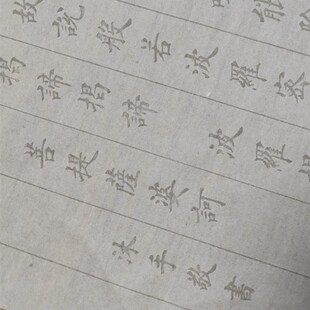 能除
故說般若波羅蜜
揭諦揭諦 波羅揭
菩提薩婆訶
沐手敬書